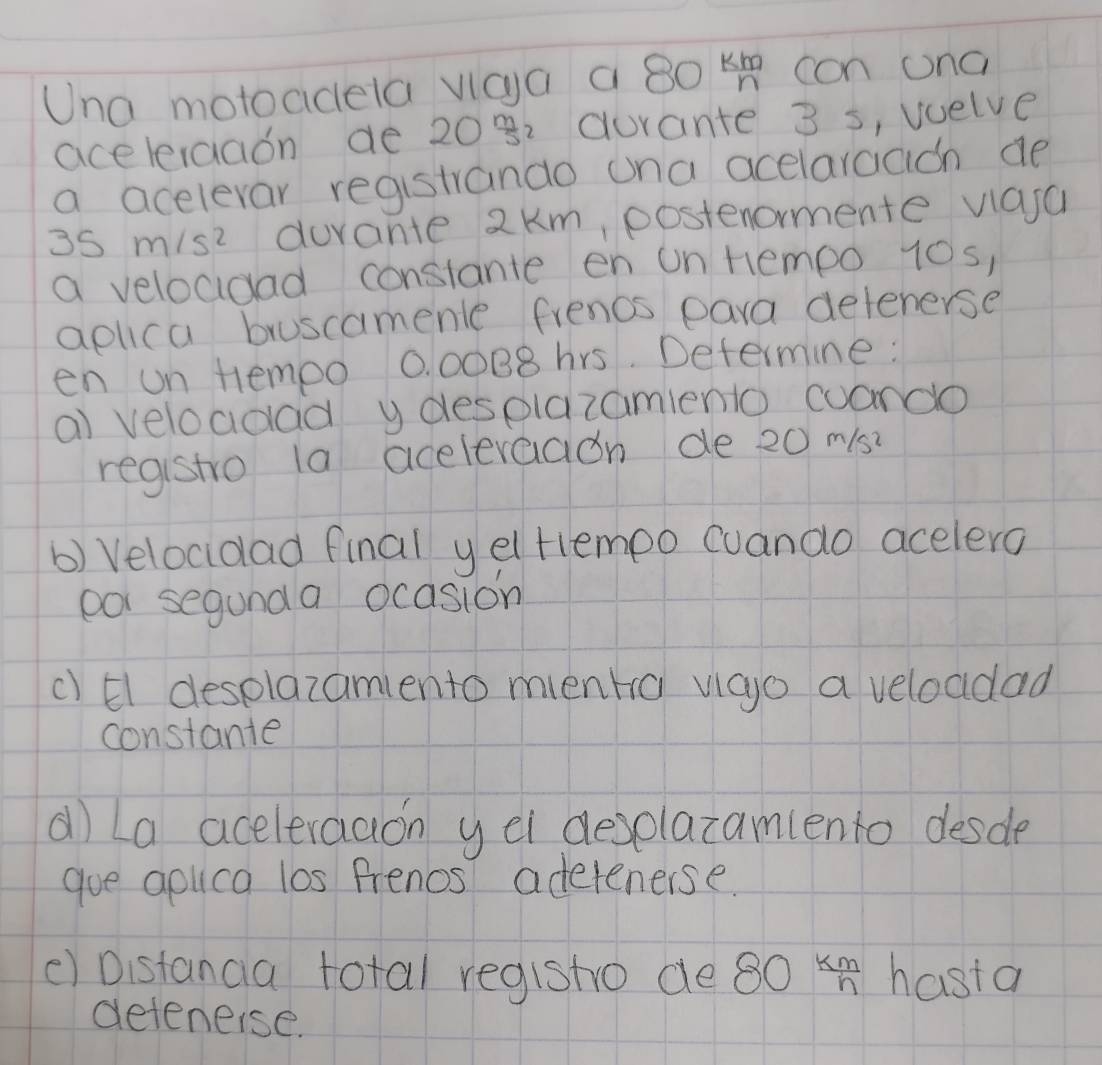 Una motoadela viaja a 80 km/h con una
aceleración de 20 m/s² durante 3 s, vuelve
a acelerar registrando una acelaración de
35 m/s² durante 2 Km, posteriormente viaja
a velocidad constante en un tiempo 10s,
aplica bruscamente frenos para detenerse
en un tiempo 0.0088 hrs. Determine:
a) velocidad y desplazamiento cuando
registro la aceleración de 20 m/s²
b) Velocidad final y el tiempo cuando acelero
por segunda ocasión
c) El desplazamiento mientra viajo a velocidad
constante
d) La aceleración y el desplazamiento desde
que aplica los frenos a detenerse.
e) Distancia total registro de 80 km/h hasta
detenerse.